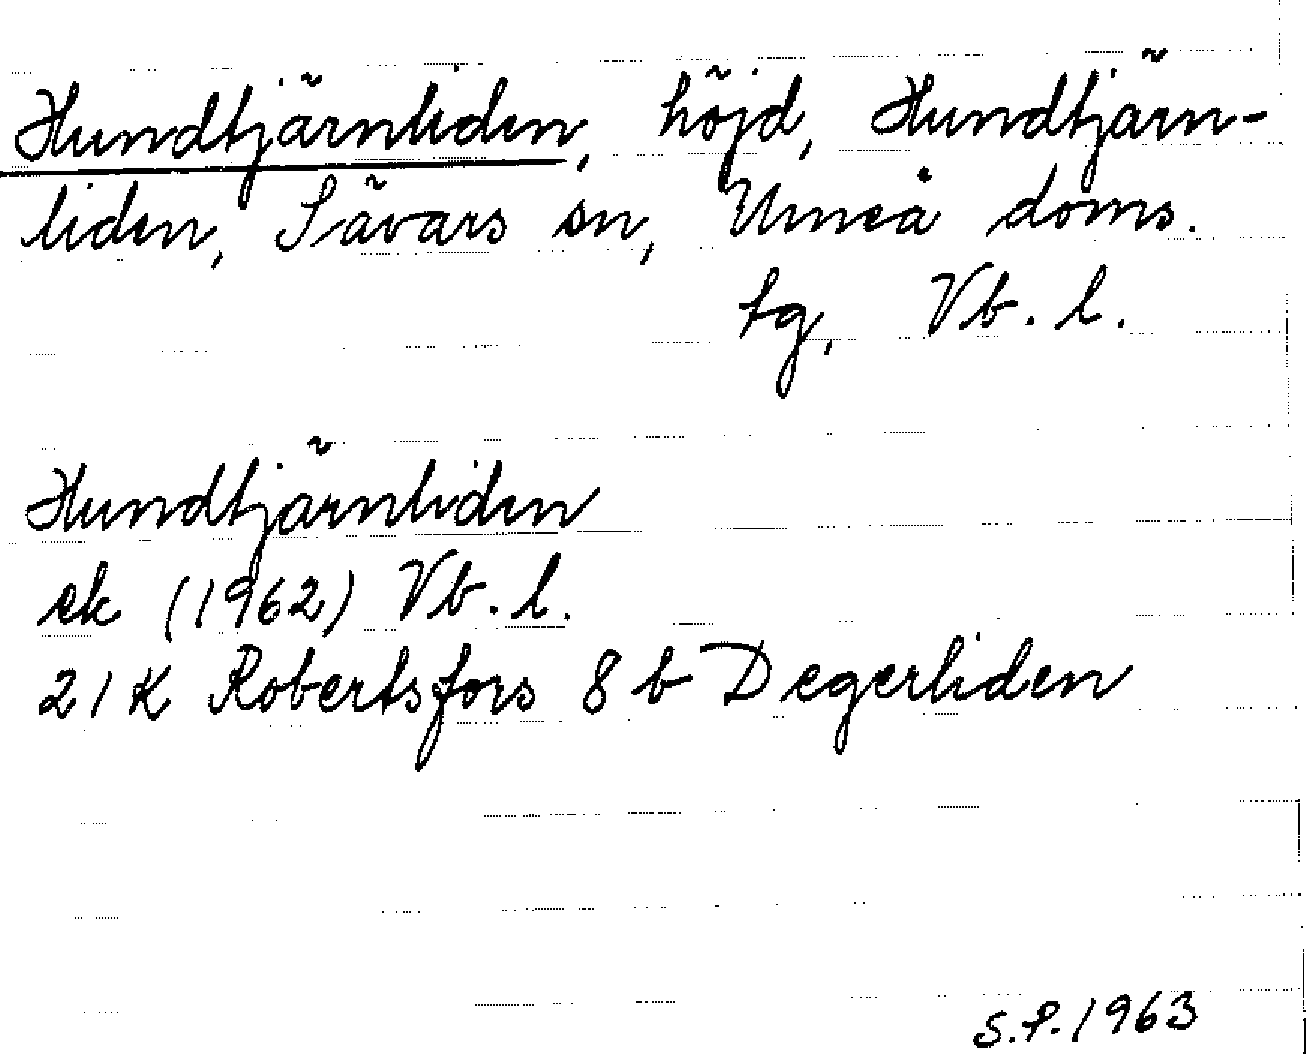 Hundtjärnliden, höjd, Hundtjärn-
liden, Sävars sn, Umeå doms.
tg, Vb. l.
Hundtjärnliden
ek (1962) Vb. l.
21K Robertsfors 8 b Degerliden
S.P. 1963